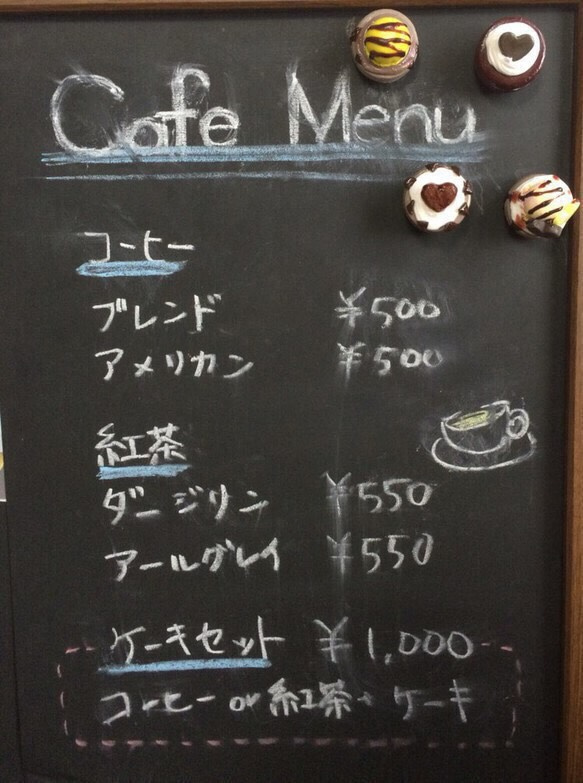 Cafe Menu
コーヒー
ブレンド ¥500
アメリカン ¥500
紅茶
ダージリン ¥550
アールグレイ ¥550
ケーキセット ¥1,000
コーヒー or 紅茶 + ケーキ